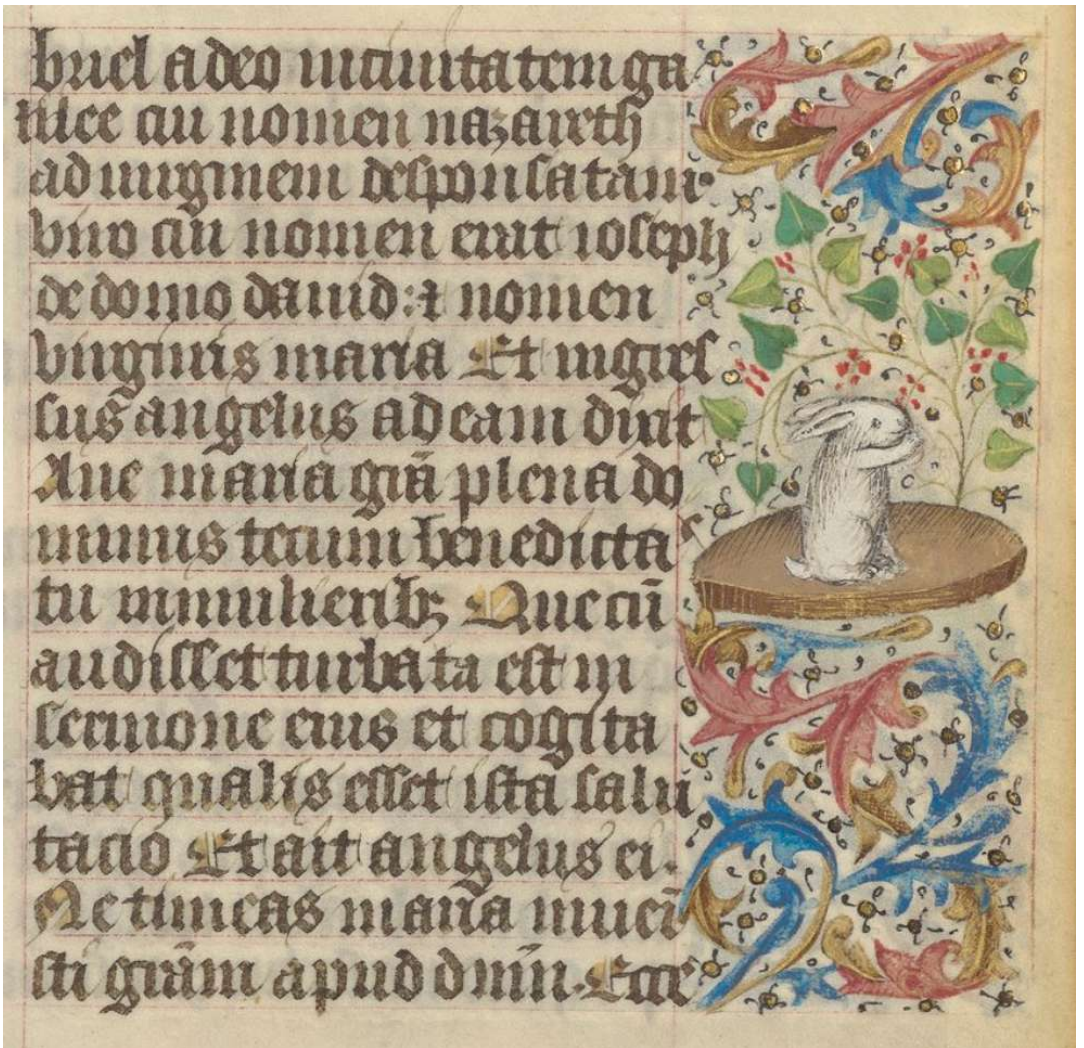 briel a deo in ciuitatem ga
lilee cui nomen nazareth
ad uirginem desponsatam
viro cui nomen erat ioseph
de domo dauid: ⁊ nomen
virginis maria Et ingres
sus angelus ad eam dixit
Aue maria gr̄a plena do
minus tecum benedicta
tu in mulieribꝫ Que cū
audisset turbata est in
sermone eius et cogita
bat qualis esset ista salu
tacio Et ait angelus ei.
Ne timeas maria inueni
sti gr̄am apud dnm̄. Ecce